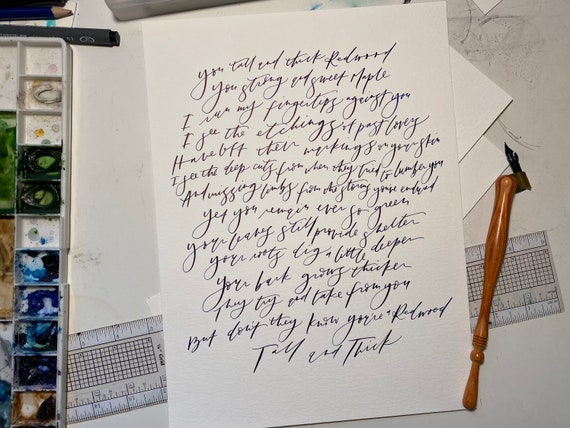 You tall and thick Redwood
You strong and sweet Maple
I run my fingertips against you
I see the etchings of past lovers
Have left their markings on your skin
I see the deep cuts from when they tried to lumber you
And missing limbs from the storms you've endured
Yet you remain ever so green
Your leaves still provide shelter
Your roots dig a little deeper
Your bark grows thicker
They try and take from you
But don't they know you're a Redwood
Tall and Thick